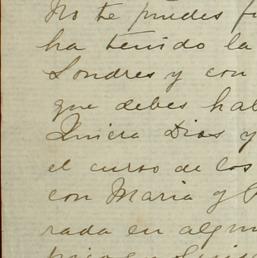 No te puedes
ha tenido la
Londres y con
que debes
Quiera Dios y
el curso de los
con Maria y
rada en